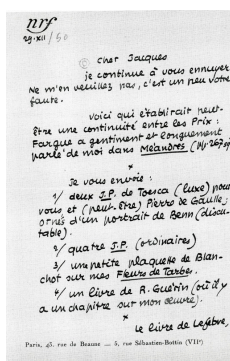 nrf
29.XII/50
cher Jacques
je continue à vous ennuyer
Ne m'en veuillez pas, c'est un peu votre
faute.
Voici qui établirait peut-
être une continuité entre les Prix :
Fargue a gentiment et longuement
parlé de moi dans Méandres (pp. 267
*
Je vous envoie :
1/ deux J.P. de Toesca (luxe) pour
vous et (peut-être) Pierre de Gaulle,
ornés d'un portrait de Benn (discu-
table).
2/ quatre J.P. (ordinaires)
3/ une petite plaquette de Blan-
chot sur mes Fleurs de Tarbes.
4/ un livre de R. Guérin (où il y
a un chapitre sur mon œuvre).
*
le livre de Lefebve,
Paris, 43, rue de Beaune — 5, rue Sébastien-Bottin (VIIe)